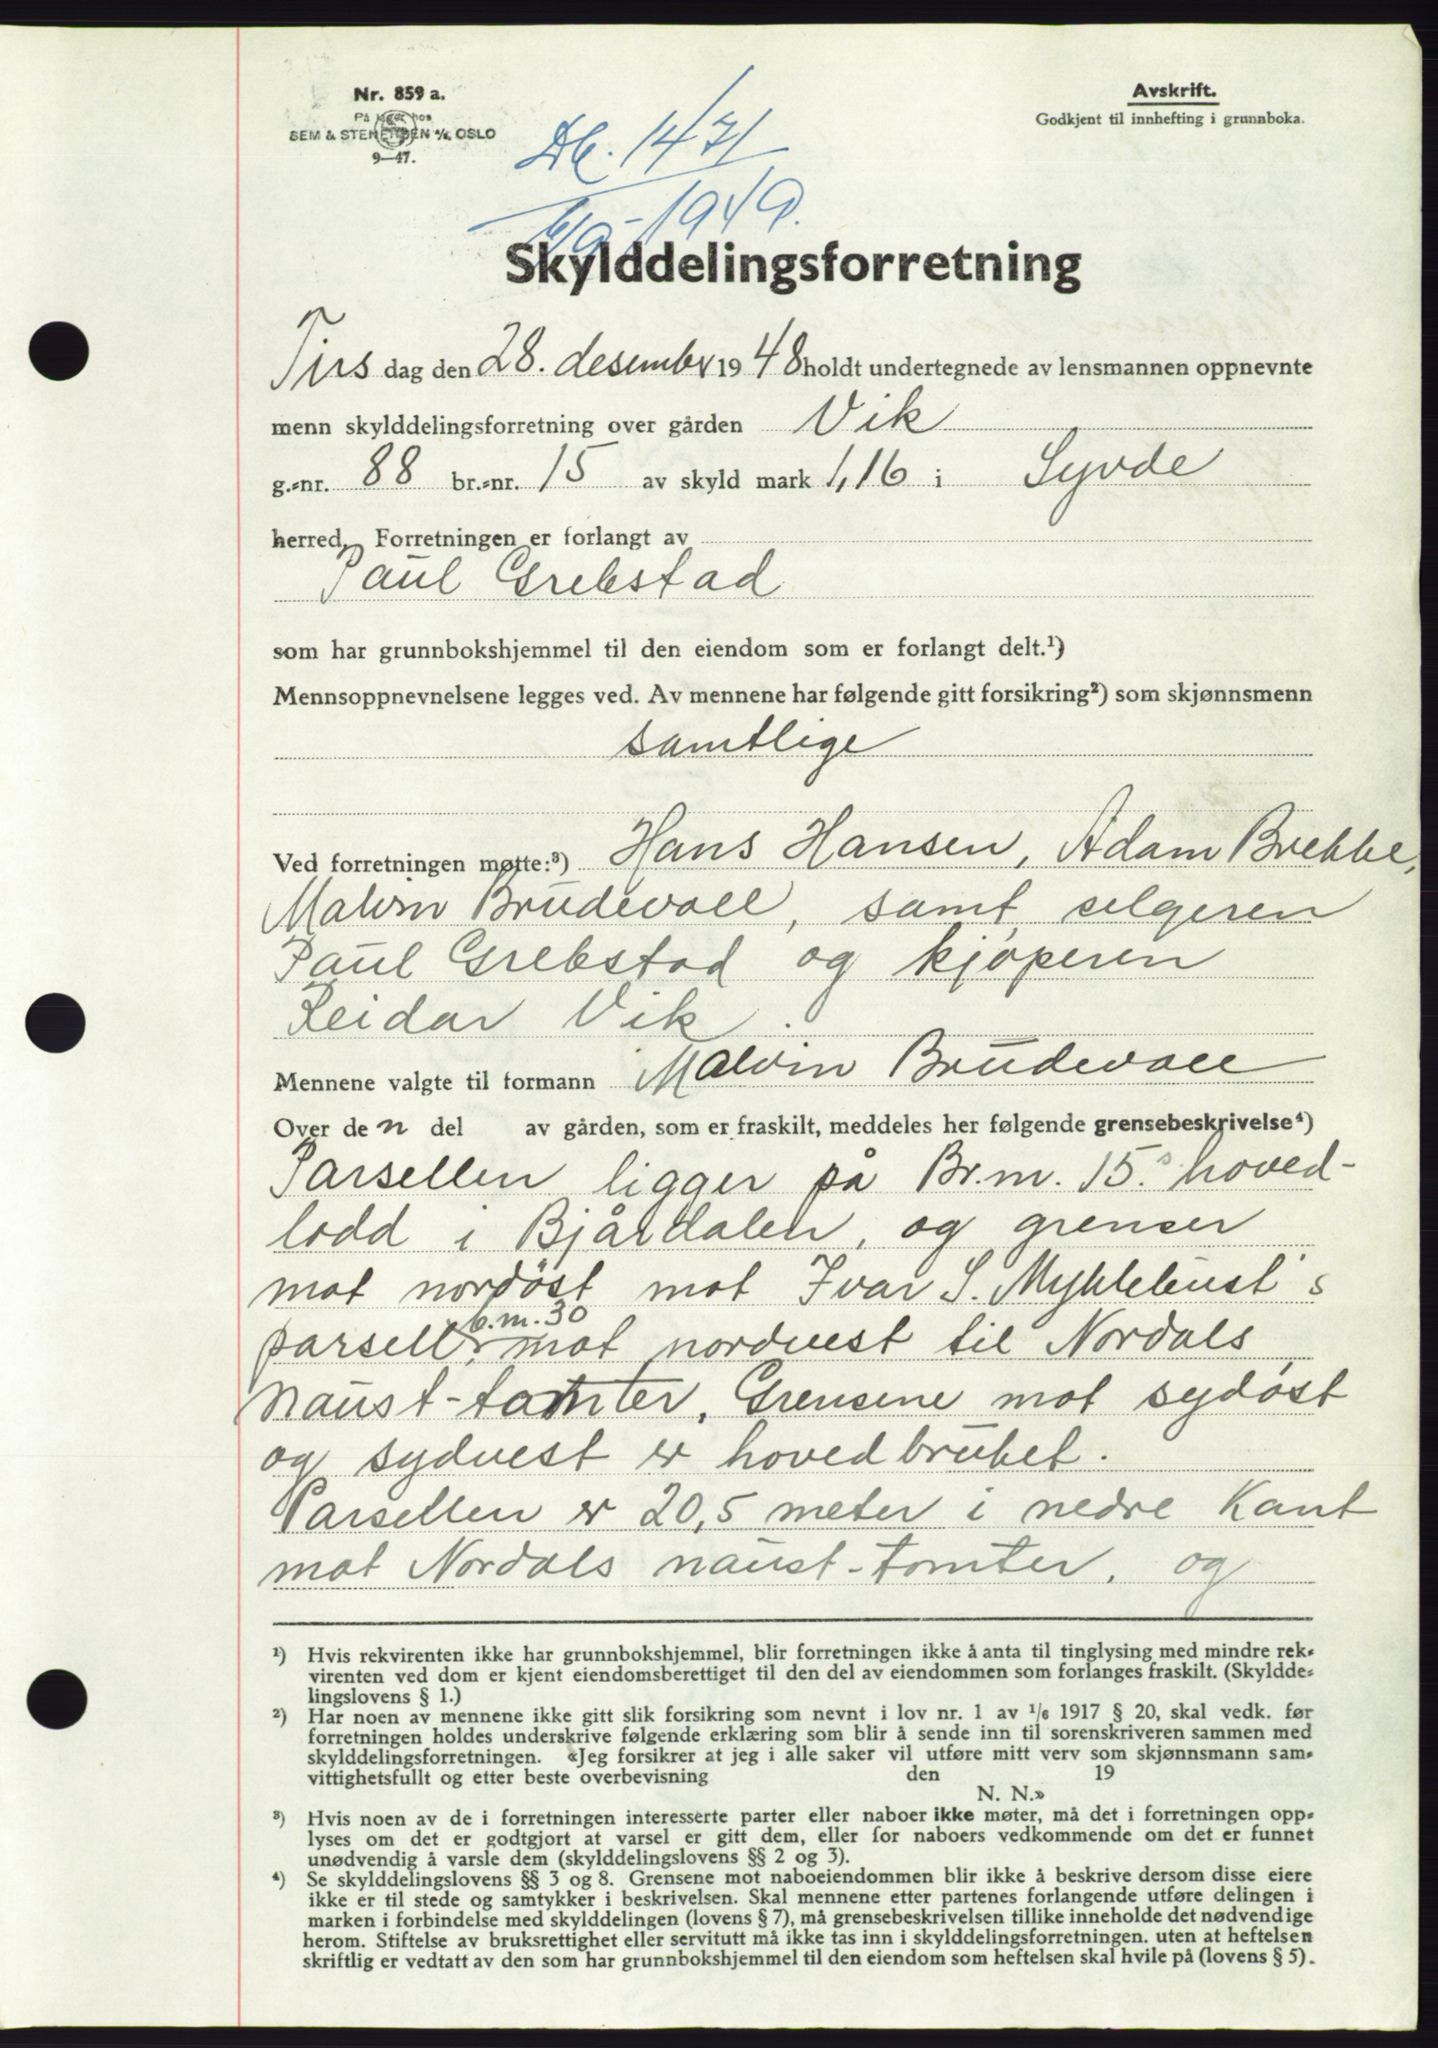 Nr. 859 a.
På lager hos
SEM & STENERSEN A/S, OSLO
9—47.
Avskrift.
Godkjent til innhefting i grunnboka.
Db. 1471
6/9-1949.
Skylddelingsforretning
Tirs dag den 28. desember 1948 holdt undertegnede av lensmannen oppnevnte
menn skylddelingsforretning over gården Vik
g.-nr. 88 br.-nr. 15 av skyld mark 1,16 i Syvde
herred. Forretningen er forlangt av
Paul Grebstad
som har grunnbokshjemmel til den eiendom som er forlangt delt.¹)
Mennsoppnevnelsene legges ved. Av mennene har følgende gitt forsikring²) som skjønnsmenn
samtlige
Ved forretningen møtte:³) Hans Hansen, Adam Brekke,
Malvin Brudevoll, samt selgeren
Paul Grebstad og kjøperen
Reidar Vik.
Mennene valgte til formann Malvin Brudevoll
Over den del av gården, som er fraskilt, meddeles her følgende grensebeskrivelse⁴)
Parsellen ligger på Br.nr. 15.s hoved-
lodd i Bjårdalen, og grenser
mot nordøst mot Ivar S. Myklebust's
b.nr. 30
parsell, mot nordvest til Nordals
naust-tomter. Grensene mot sydøst
og sydvest er hovedbruket.
Parsellen er 20,5 meter i nedre kant
mot Nordals naust-tomter, og
¹) Hvis rekvirenten ikke har grunnbokshjemmel, blir forretningen ikke å anta til tinglysing med mindre rek-
virenten ved dom er kjent eiendomsberettiget til den del av eiendommen som forlanges fraskilt. (Skyldde-
lingslovens § 1.)
²) Har noen av mennene ikke gitt slik forsikring som nevnt i lov nr. 1 av 1/6 1917 § 20, skal vedk. før
forretningen holdes underskrive følgende erklæring som blir å sende inn til sorenskriveren sammen med
skylddelingsforretningen. «Jeg forsikrer at jeg i alle saker vil utføre mitt verv som skjønnsmann sam-
vittighetsfullt og etter beste overbevisning den 19
N. N.»
³) Hvis noen av de i forretningen interesserte parter eller naboer ikke møter, må det i forretningen opp-
lyses om det er godtgjort at varsel er gitt dem, eller for naboers vedkommende om det er funnet
unødvendig å varsle dem (skylddelingslovens §§ 2 og 3).
⁴) Se skylddelingslovens §§ 3 og 8. Grensene mot naboeiendommen blir ikke å beskrive dersom disse eiere
ikke er til stede og samtykker i beskrivelsen. Skal mennene etter partenes forlangende utføre delingen i
marken i forbindelse med skylddelingen (lovens § 7), må grensebeskrivelsen tillike inneholde det nødvendige
herom. Stiftelse av bruksrettighet eller servitutt må ikke tas inn i skylddelingsforretningen. uten at heftelsen
skriftlig er vedtatt av den som har grunnbokshjemmel til den eiendom som heftelsen skal hvile på (lovens § 5).